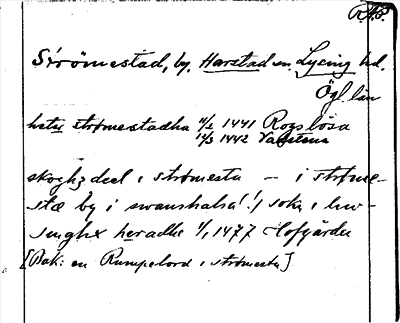 RAP.
Strömestad, by, Harstad sn. Lysing hd.
Ögl. län
strømestadha 1441 Rogslösa
1442 Vadstena
skoghz deel i strømesta – i strøme-
stæ by i swanshalsa (!) sokn i
heradhe 1/1 1477 Hofgården
[Bak: en Rumpelord i strømesta]